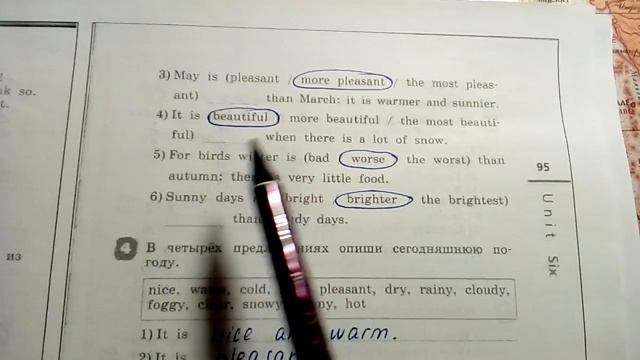 3) May is (pleasant / more pleasant / the most pleas-
ant) ______ than March: it is warmer and sunnier.
4) It is (beautiful / more beautiful / the most beauti-
ful) ______ when there is a lot of snow.
5) For birds winter is (bad / worse / the worst) than
autumn: there is very little food.
6) Sunny days bright / brighter / the brightest)
______ than days.
95
Unit Six
4 В четырёх предложениях опиши сегодняшнюю по-
году.
nice, warm, cold, pleasant, dry, rainy, cloudy,
foggy, clear, snowy, hot
1) It is nice and warm.
2) It is pleasant
ok so.
t.
из